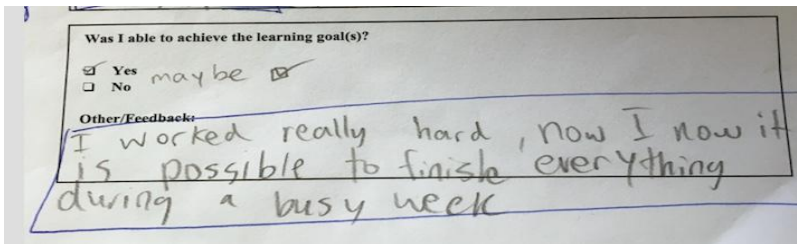 Was I able to achieve the learning goal(s)?
☑ Yes maybe ☑
☐ No
Other/Feedback:
I worked really hard, now I now it
is possible to finish everything
during a busy week